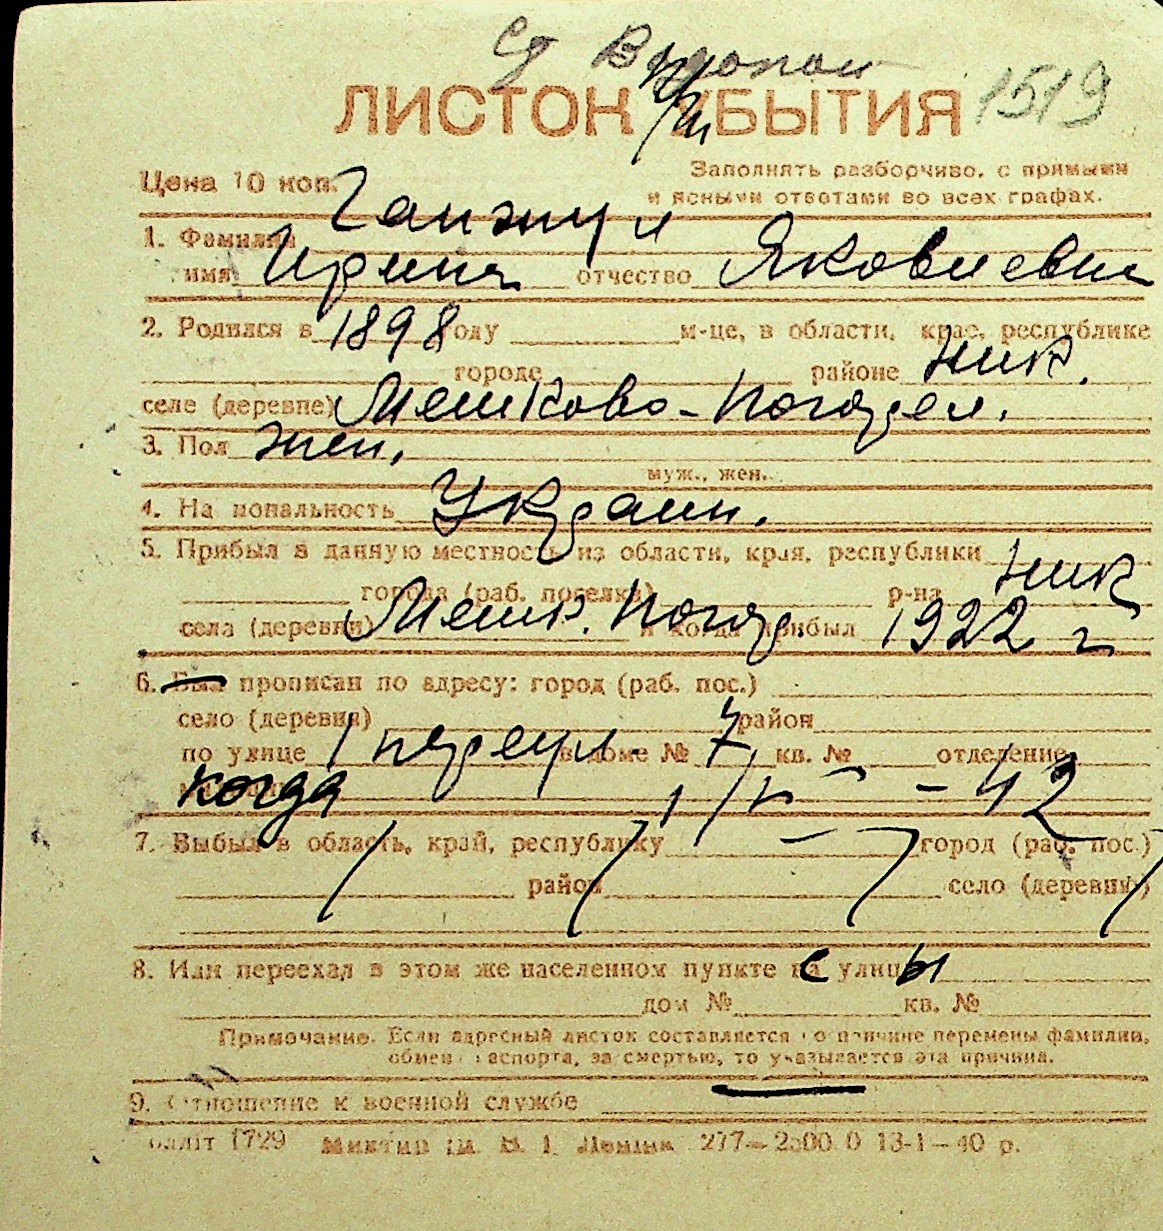 Ст Водопой
ЛИСТОК УБЫТИЯ 1519
Цена 10 коп.
Заполнять разборчиво, с прямыми
и ясными ответами во всех графах.
1. Фамилия Ганжул
имя Ирина отчество Яковлевна
2. Родился в 1898 году м-це, в области, крае, республике
городе районе Ник.
селе (деревне) Мешково-Погорел.
3. Пол жен.
муж., жен.
4. Национальность Украин.
5. Прибыл в данную местность из области, края, республики
города (раб. поселка) р-на Ник
села (деревни) Мешк. Погор. и когда прибыл 1922 г
6. Был прописан по адресу: город (раб. пос.)
село (деревня) район
по улице 1 переул. в доме № 7 кв. № отделение
когда 42
7. Выбыл в область, край, республику город (раб. пос.)
район село (деревня)
8. Или переехал в этом же населенном пункте с улицы
дом № кв. №
Примечание. Если адресный листок составляется по причине перемены фамилии,
обмен паспорта, за смертью, то указывается эта причина.
9. Отношение к военной службе
1729 277—2500.0 13-1—40 р.